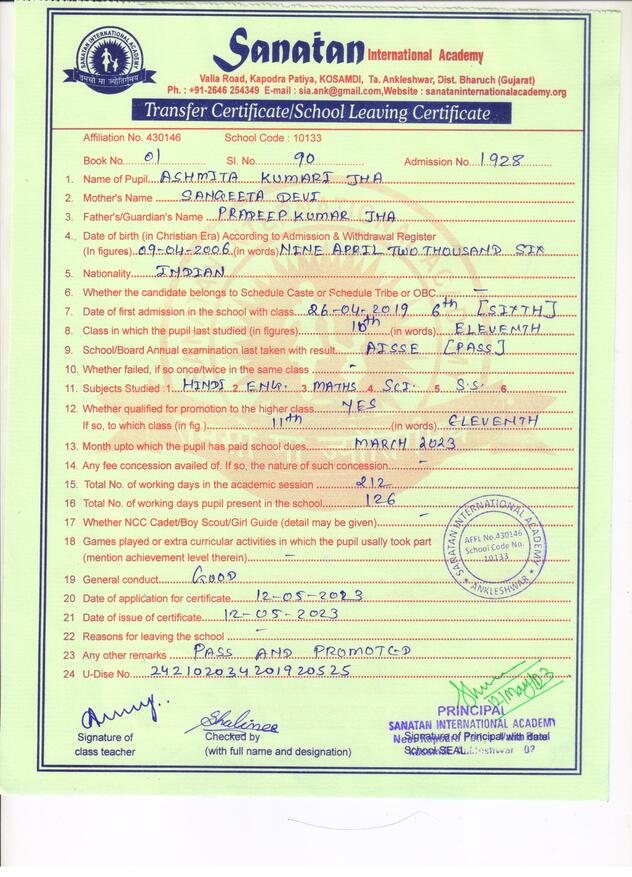 SANATAN INTERNATIONAL ACADEMY
तमसो मा ज्योतिर्गमय
Sanatan International Academy
Valia Road, Kapodra Patiya, KOSAMDI, Ta. Ankleshwar, Dist. Bharuch (Gujarat)
Ph. : +91-2646 254349 E-mail : sia.ank@gmail.com,Website : sanataninternationalacademy.org
Transfer Certificate/School Leaving Certificate
Affiliation No. 430146 School Code : 10133
Book No. 01 Sl. No. 90 Admission No. 1928
1. Name of Pupil ASHMITA KUMARI JHA
2. Mother's Name SANGEETA DEVI
3. Father's/Guardian's Name PRADEEP KUMAR JHA
4. Date of birth (in Christian Era) According to Admission & Withdrawal Register
(In figures) 09-04-2006 (in words) NINE APRIL TWO THOUSAND SIX
5. Nationality INDIAN
6. Whether the candidate belongs to Schedule Caste or Schedule Tribe or OBC —
7. Date of first admission in the school with class 26-04-2019 6th [SIXTH]
8. Class in which the pupil last studied (in figures) 10th (in words) ELEVENTH
9. School/Board Annual examination last taken with result AISSE [PASS]
10. Whether failed, if so once/twice in the same class -
11. Subjects Studied :1. HINDI 2. ENG. 3. MATHS 4. SCI. 5. S.S. 6.
12. Whether qualified for promotion to the higher class YES
If so, to which class (in fig.) 11th (in words) ELEVENTH
13. Month upto which the pupil has paid school dues MARCH 2023
14. Any fee concession availed of. If so, the nature of such concession -
15. Total No. of working days in the academic session 212
16 Total No. of working days pupil present in the school 126
17 Whether NCC Cadet/Boy Scout/Girl Guide (detail may be given) -
18 Games played or extra curricular activities in which the pupil usally took part
(mention achievement level therein) —
19 General conduct GOOD
20 Date of application for certificate 12-05-2023
21 Date of issue of certificate 12-05-2023
22 Reasons for leaving the school —
23 Any other remarks PASS AND PROMOTED
24 U-Dise No. 242102034201920525
SANATAN INTERNATIONAL ACADEMY
AFFL No.430146
School Code No.
10133
★ ANKLESHWAR ★
Shalinee
PRINCIPAL
SANATAN INTERNATIONAL ACADEMY
Signature of class teacher
Checked by
(with full name and designation)
Signature of Principal with date
School SEAL